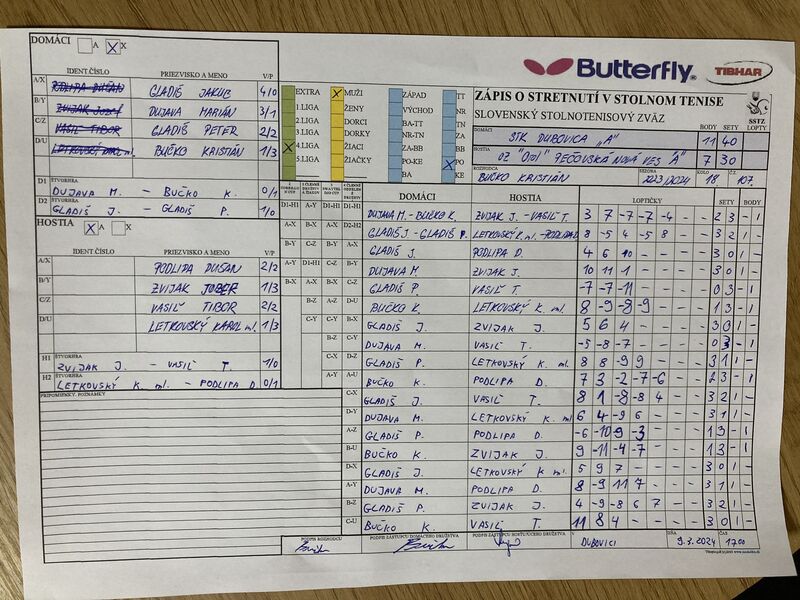 DOMÁCI A X
Butterfly TIBHAR
IDENT ČÍSLO PRIEZVISKO A MENO V/P
A/X PODLIPA DUŠAN GLADIŠ JAKUB 4/0
B/Y ZVIJAK JOZEF DUJAVA MARIÁN 3/1
C/Z VASIĽ TIBOR GLADIŠ PETER 2/2
D/U BUČKO KRISTIÁN 1/3
EXTRA X MUŽI ZÁPAD TT
1.LIGA ŽENY VÝCHOD NR
2.LIGA DORCI BA-TT TN
3.LIGA DORKY NR-TN ZA
X 4.LIGA ŽIACI ZA-BB BB
5.LIGA ŽIAČKY PO-KE X PO
BA KE
ZÁPIS O STRETNUTÍ V STOLNOM TENISE
SLOVENSKÝ STOLNOTENISOVÝ ZVÄZ
SSTZ
DOMÁCI STK DUBOVICA "A" BODY 11 SETY 40 LOPTY
HOSTIA OZ PEČOVSKÁ NOVÁ VES A" 7 30
ROZHODCA BUČKO KRISTIÁN SEZÓNA 2023/2024 KOLO 18 Č. 107.
D1 ŠTVORHRA DUJAVA M. - BUČKO K. 0/1
D2 ŠTVORHRA GLADIŠ J. - GLADIŠ P. 1/0
HOSTIA X A X
IDENT ČÍSLO PRIEZVISKO A MENO V/P
A/X PODLIPA DUŠAN 2/2
B/Y ZVIJAK 1/3
C/Z VASIĽ TIBOR 2/2
D/U LETKOVSKÝ KAROL ml. 1/3
H1 ŠTVORHRA ZVIJAK J. - VASIĽ T. 1/0
H2 ŠTVORHRA LETKOVSKÝ K. ml. - PODLIPA D. 0/1
PRIPOMIENKY, POZNÁMKY
DOMÁCI HOSTIA LOPTIČKY SETY BODY
D1-H1 A-Y D1-H1 D1-H1 DUJAVA M - BUČKO K. ZVIJAK J. - VASIĽ T. 3 7 -7 -7 -4 - - 2 3 - 1
A-X B-X A-X D2-H2 GLADIŠ J - GLADIŠ P. LETKOVSKÝ K. ml. - PODLIPA D 8 -5 4 -5 8 - - 3 2 1 -
B-Y C-Z B-Y A-X GLADIŠ J. PODLIPA D. 4 6 10 - - - - 3 0 1 -
A-Y D1-H1 C-Z B-Y DUJAVA M. ZVIJAK J. 10 11 1 - - - - 3 0 1 -
B-X A-X B-X C-Z GLADIŠ P. VASIĽ T. -7 -7 -11 - - - - 0 3 - 1
B-Z A-Z D-U BUČKO K. LETKOVSKÝ K. ml. 8 -9 -8 -9 - - - 1 3 - 1
C-Y C-Y B-X GLADIŠ J. ZVIJAK J. 5 6 4 - - - - 3 0 1 -
B-Z C-Y DUJAVA M. VASIĽ T. -5 -8 -7 - - - - 0 3 - 1
C-X D-Z GLADIŠ P. LETKOVSKÝ K. ml. 8 8 -9 9 - - - 3 1 1 -
A-Y A-U BUČKO K. PODLIPA D. 7 3 -2 -7 -6 - - 2 3 - 1
C-X GLADIŠ J. VASIĽ T. 8 1 -8 -8 4 - - 3 2 1 -
D-Y DUJAVA M. LETKOVSKÝ K. ml 6 4 -9 6 - - - 3 1 1 -
A-Z GLADIŠ P. PODLIPA D. -6 -10 9 -3 - - - 1 3 - 1
B-U BUČKO K. ZVIJAK J. 9 -11 -4 -7 - - - 1 3 - 1
D-X GLADIŠ J. LETKOVSKÝ K. ml 5 9 7 - - - - 3 0 1 -
A-Y DUJAVA M. PODLIPA D. 8 -9 11 7 - - - 3 1 1 -
B-Z GLADIŠ P. ZVIJAK J. 4 -9 -8 6 7 - - 3 2 1 -
C-U BUČKO K. VASIĽ T. 11 8 4 - - - - 3 0 1 -
PODPIS ROZHODCU PODPIS ZÁSTUPCU DOMÁCEHO DRUŽSTVA PODPIS ZÁSTUPCU HOSŤUJÚCEHO DRUŽSTVA V DUBOVICI DŇA 9.3.2024 ČAS 17.00